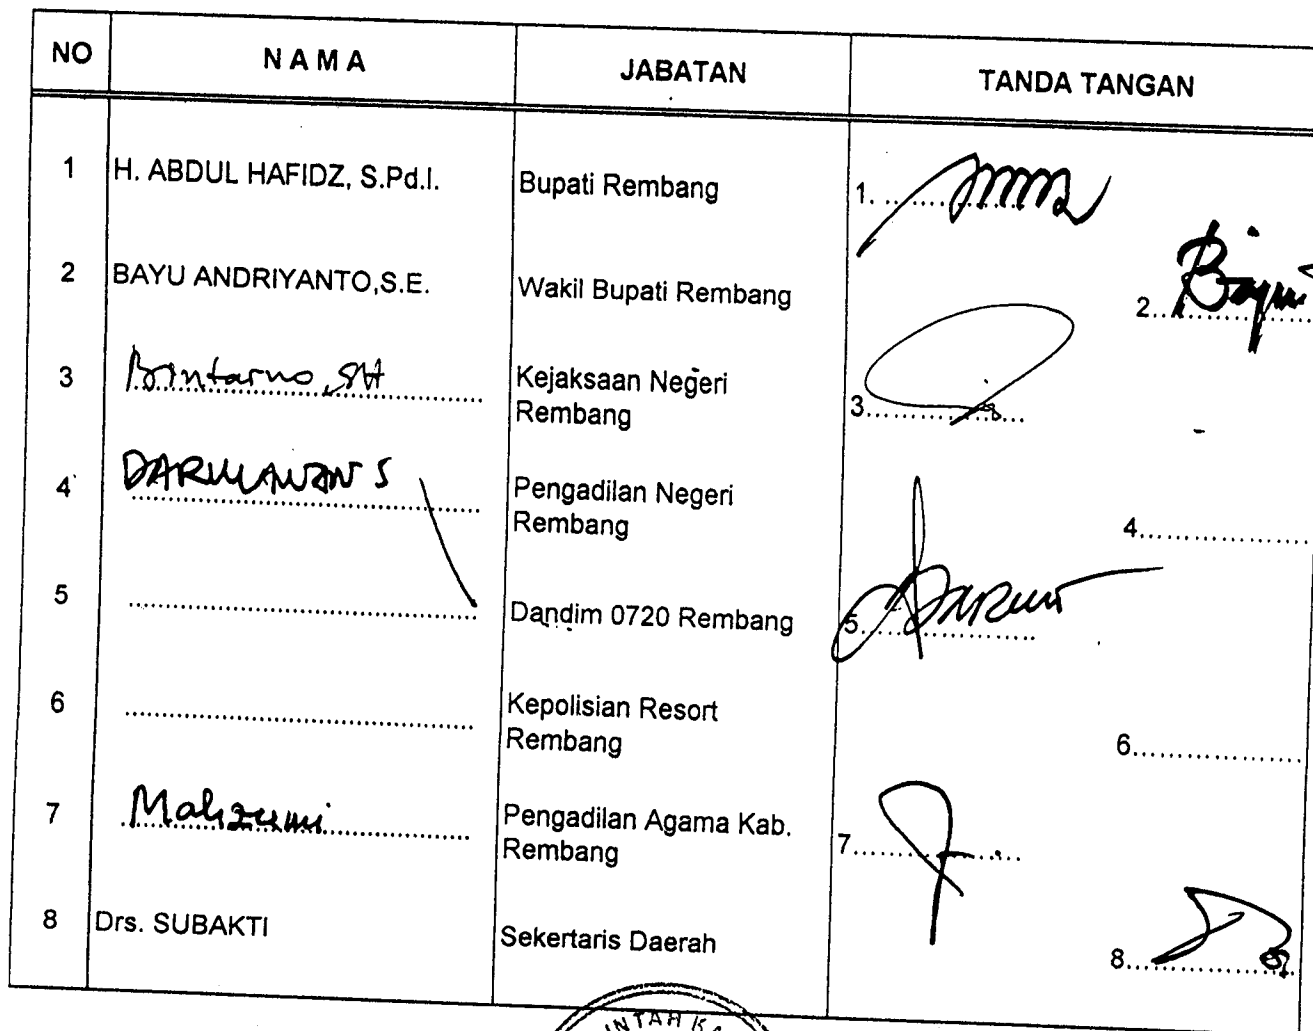 NO N A M A JABATAN TANDA TANGAN
1 H. ABDUL HAFIDZ, S.Pd.I. Bupati Rembang 1.
2 BAYU ANDRIYANTO,S.E. Wakil Bupati Rembang 2. Bayu
3 Bintarno, SH Kejaksaan Negeri
Rembang 3.
4 DARMAWAN S Pengadilan Negeri
Rembang 4.
5 Dandim 0720 Rembang 5.
6 Kepolisian Resort
Rembang 6.
7 Mahzumi Pengadilan Agama Kab.
Rembang 7.
8 Drs. SUBAKTI Sekertaris Daerah 8.
INTAH KA